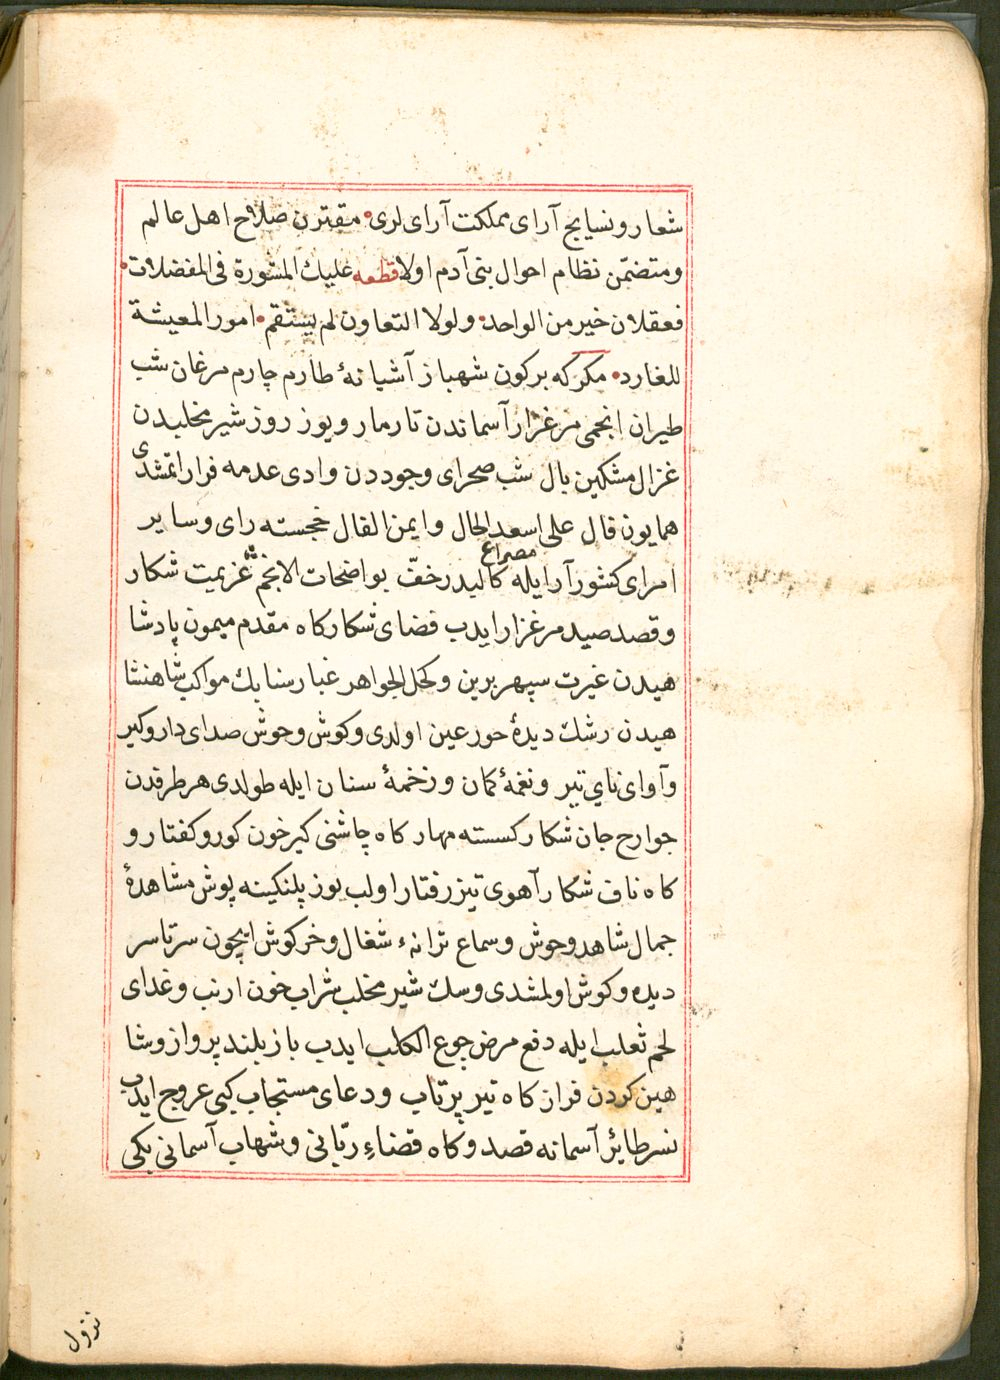 شعار و نسایج آرای مملکت آرای لری مقترن صلاح اهل عالم
و متضمّن نظام احوال بنی آدم اولا قطعه علیك المشورة فی المفضلات
فعقلان خیر من الواحد ولولا التعاون لم یستقم امور المعیشة
للفارد مکر که بر کون شهباز آشیانهٔ طارم چارم مرغان شب
طیران انجمی مرغزار آسماندن تارمار و یوز روز شیر مخلبدن
غزال مشکین بال شب صحرای وجوددن وادی عدمه فرار اتمشدی
همایون فال علی اسعد الحال و ایمن الفال خجسته رای و سایر
امرای کشور آرا ایله مصراع کالبدر خفّ بواضحات الانجم عزیمت شکار
و قصد صید مرغزار ایدب فضای شکارکاه مقدم میمون پادشا
هیدن غیرت سپهر برین و کحل الجواهر غبار سنابك مواکب شاهنشا
هیدن رشك دیدهٔ حور عین اولدی و کوش وحوش صدای دار و کیر
و آوای نای تیر و نغمهٔ کمان و زخمهٔ سنان ایله طولدی هر طرفدن
جوارح جان شکار کسسته مهار کاه چاشنی کیر خون کور و کفتار و
کاه ناف شکار آهوی تیز رفتار اولب یوز پلنکینه پوش مشاهدهٔ
جمال شاهد وحوش و سماع ترانهء شغال و خرکوش ایچون سرتاسر
دیده و کوش اولمشدی و سك شیر مخلب شراب خون ارنب و غدای
لحم ثعلب ایله دفع مرض جوع الکلب ایدب باز بلند پرواز و شا
هین کردن فراز کاه تیر پرتاب و دعای مستجاب کبی عروج ایدب
نسر طائر آسمانه قصد و کاه قضاء ربّانی و شهاب آسمانی بکی
نزول